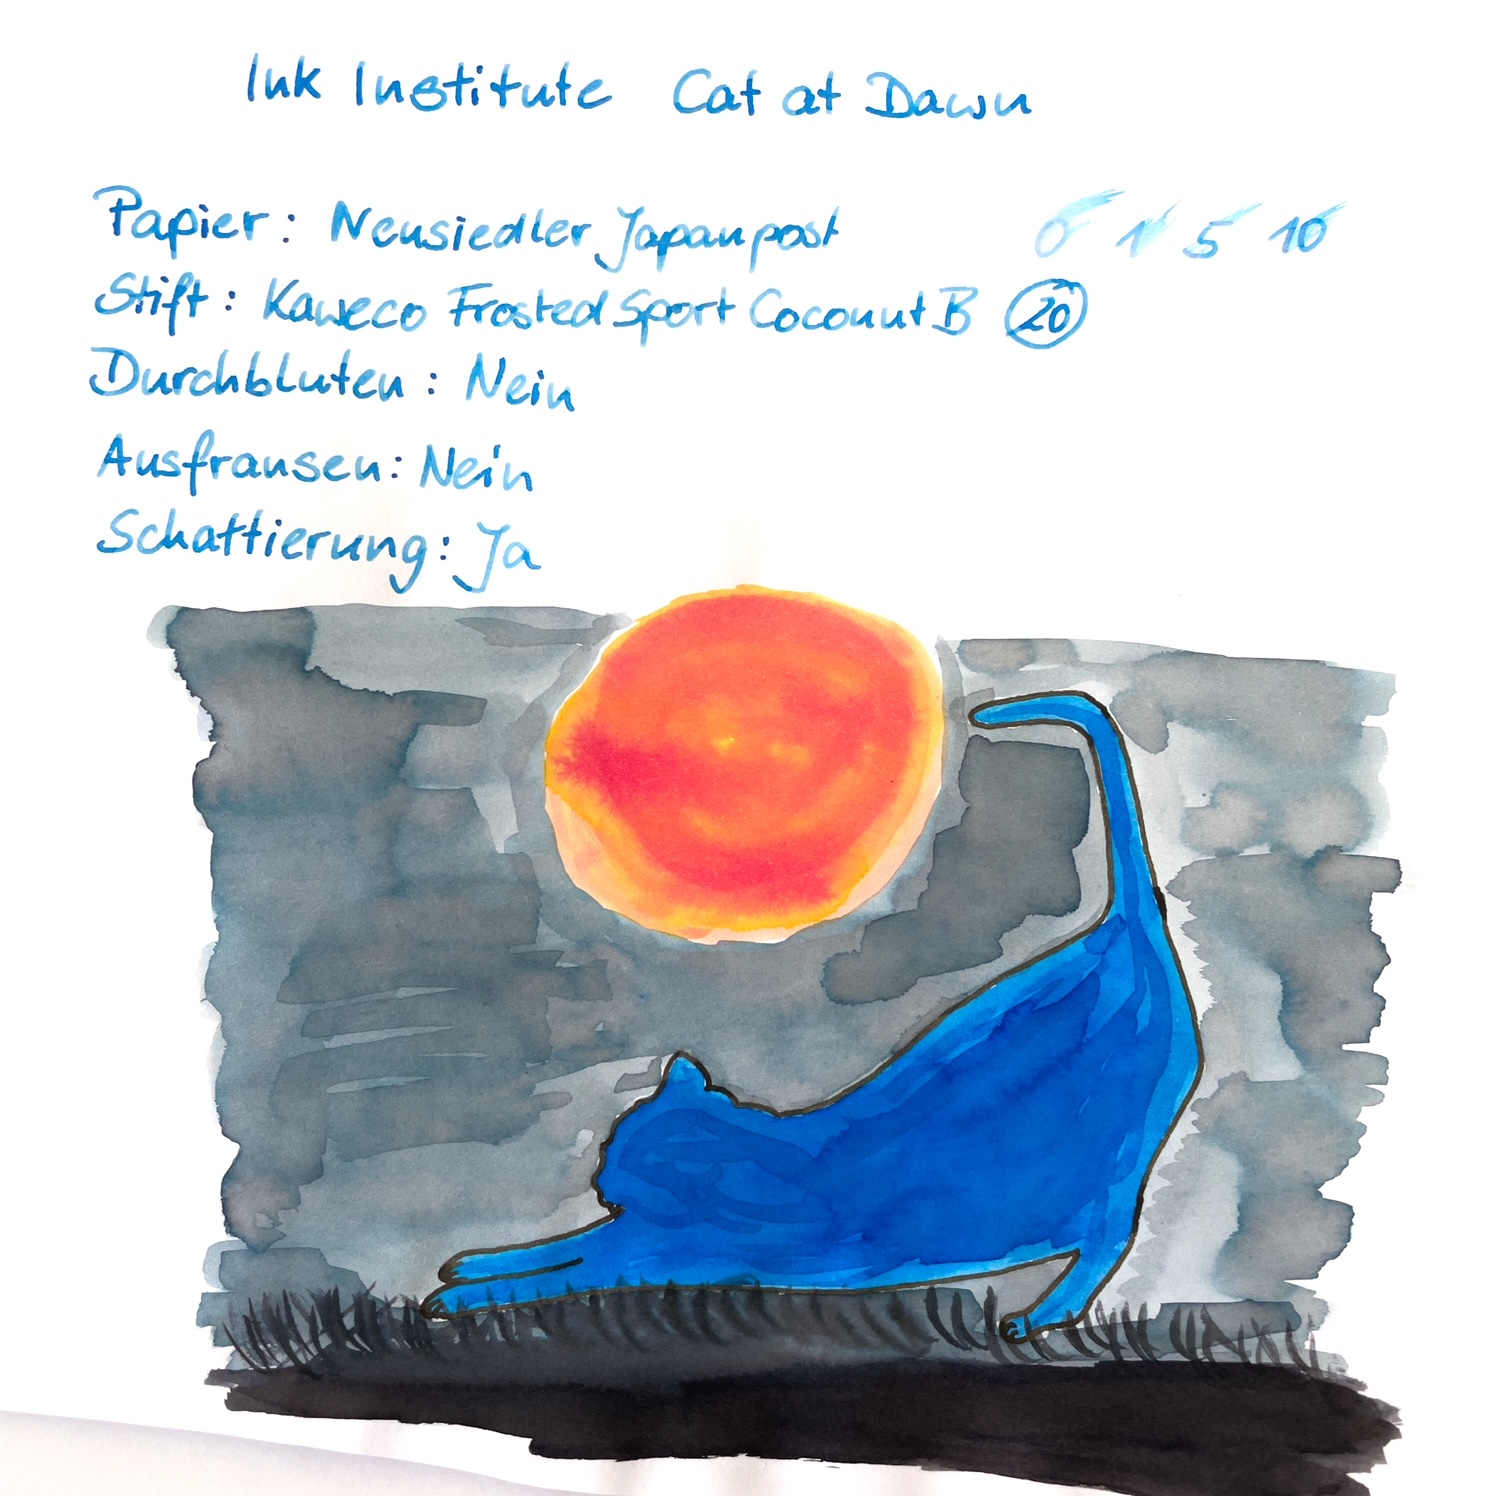 Ink Institute Cat at Dawn
Papier: Neusiedler Japanpost 0 1 5 10
Stift: Kaweco Frosted Sport Coconut B 20
Durchbluten: Nein
Ausfransen: Nein
Schattierung: Ja